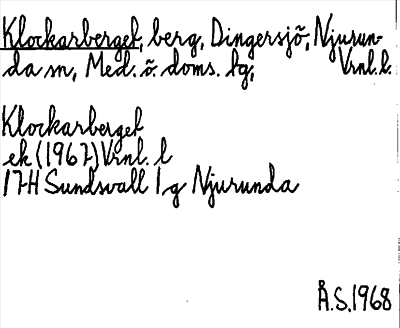 Klockarberget, berg, Dingersjö, Njurun-
da sn, Med. ö. doms. tg, Vrnl. l.
Klockarberget
ek (1967) Vrnl. l
17H Sundsvall 1g Njurunda
Å.S. 1968